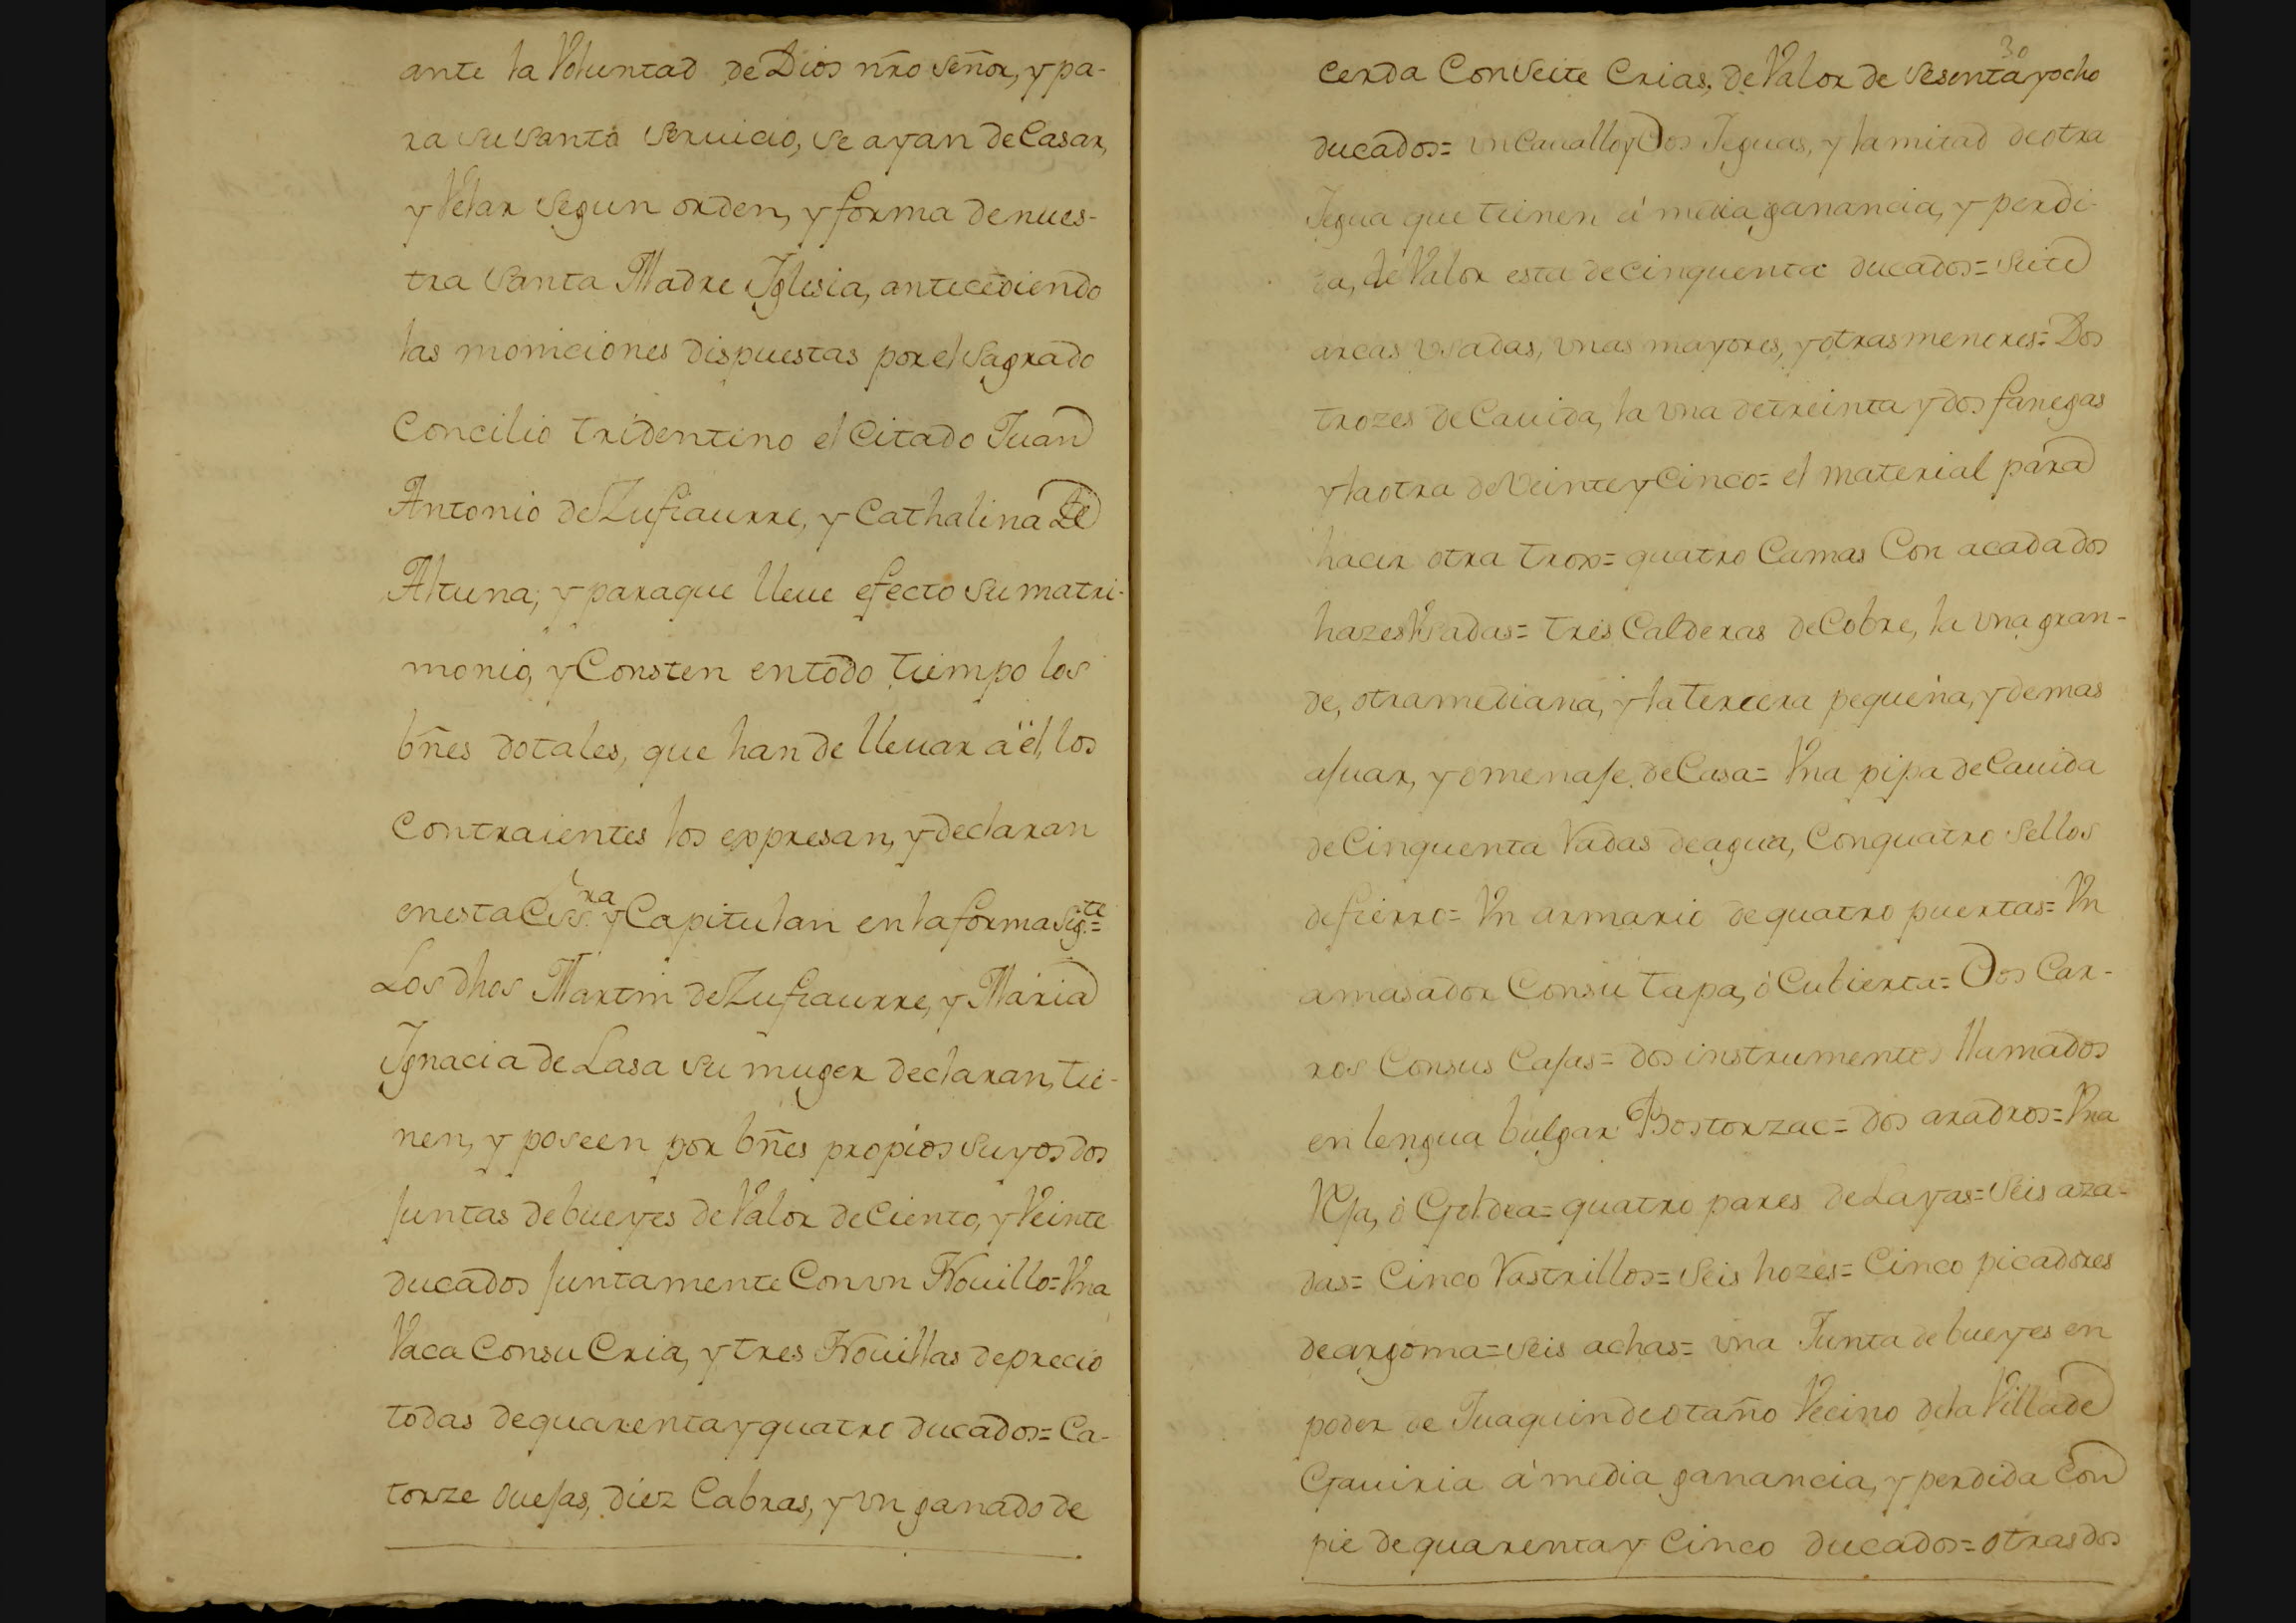 ante la Voluntad de Dios nr̃o Señor, y pa-
ra su santo seruicio, se ayan de Casar,
y Velar segun orden, y forma de nues-
tra santa Madre Iglesia, antecediendo
las moniciones dispuestas por el sagrado
Concilio tridentino el Citado Juan
Antonio de Zufiaurre, y Cathalina de
Altuna; y para que lleue efecto su matri-
monio, y Consten en todo tiempo los
bñes dotales, que han de lleuar a él, los
contraientes los expresan, y declaran
en esta Css.ra y Capitulan en la forma sig.te=
Los dhos Martin de Zufiaurre, y Maria
Ignacia de Lasa su muger declaran, tie-
nen, y poseen por bñes propios suyos dos
Juntas de bueyes de Valor de Ciento, y Veinte
ducados Juntamente Con vn Nouillo= Vna
Vaca Con su Cria, y tres Nouillas de precio
todas de quarenta y quatro ducados= Ca-
torze ouejas, diez Cabras, y vn ganado de
30
cerda Con Seite Crias, de Valor de Sesenta y ocho
ducados= vn Cauallo y Dos Yeguas, y la mitad de otra
Yegua que tienen á media ganancia, y perdi-
da, de Valor esta de cinquenta ducados= Siete
arcas vsadas, vnas mayores, y otras menores= Dos
trozes de Cauida, la vna de treinta y dos fanegas
y la otra de Veinte y Cinco= el material para
hacer otra trox= quatro Camas Con a cada dos
hazes Vsadas= tres Calderas de Cobre, la vna gran-
de, otra mediana, y la tercera pequeña, y demas
ajuar, y omenaje de Casa= Vna pipa de Cauida
de Cinquenta Vadas de agua, Con quatro Sellos
de fierro= Vn armario de quatro puertas= Vn
amasador Con su tapa, ó Cubierta= Dos Car-
ros Con sus Cajas= dos instrumentos llamados
en lengua bulgar Bostorzac= dos aradros= Vna
Reja, ó Goldea= quatro pares de Layas= Seis aza-
das= Cinco Rastrillos= Seis hozes= Cinco picadores
de argoma= Seis achas= vna Junta de bueyes en
poder de Juaquin de Otaño Vecino de la Villa de
Gauiria á media ganancia, y perdida Con
pie de quarenta y Cinco ducados= otras dos